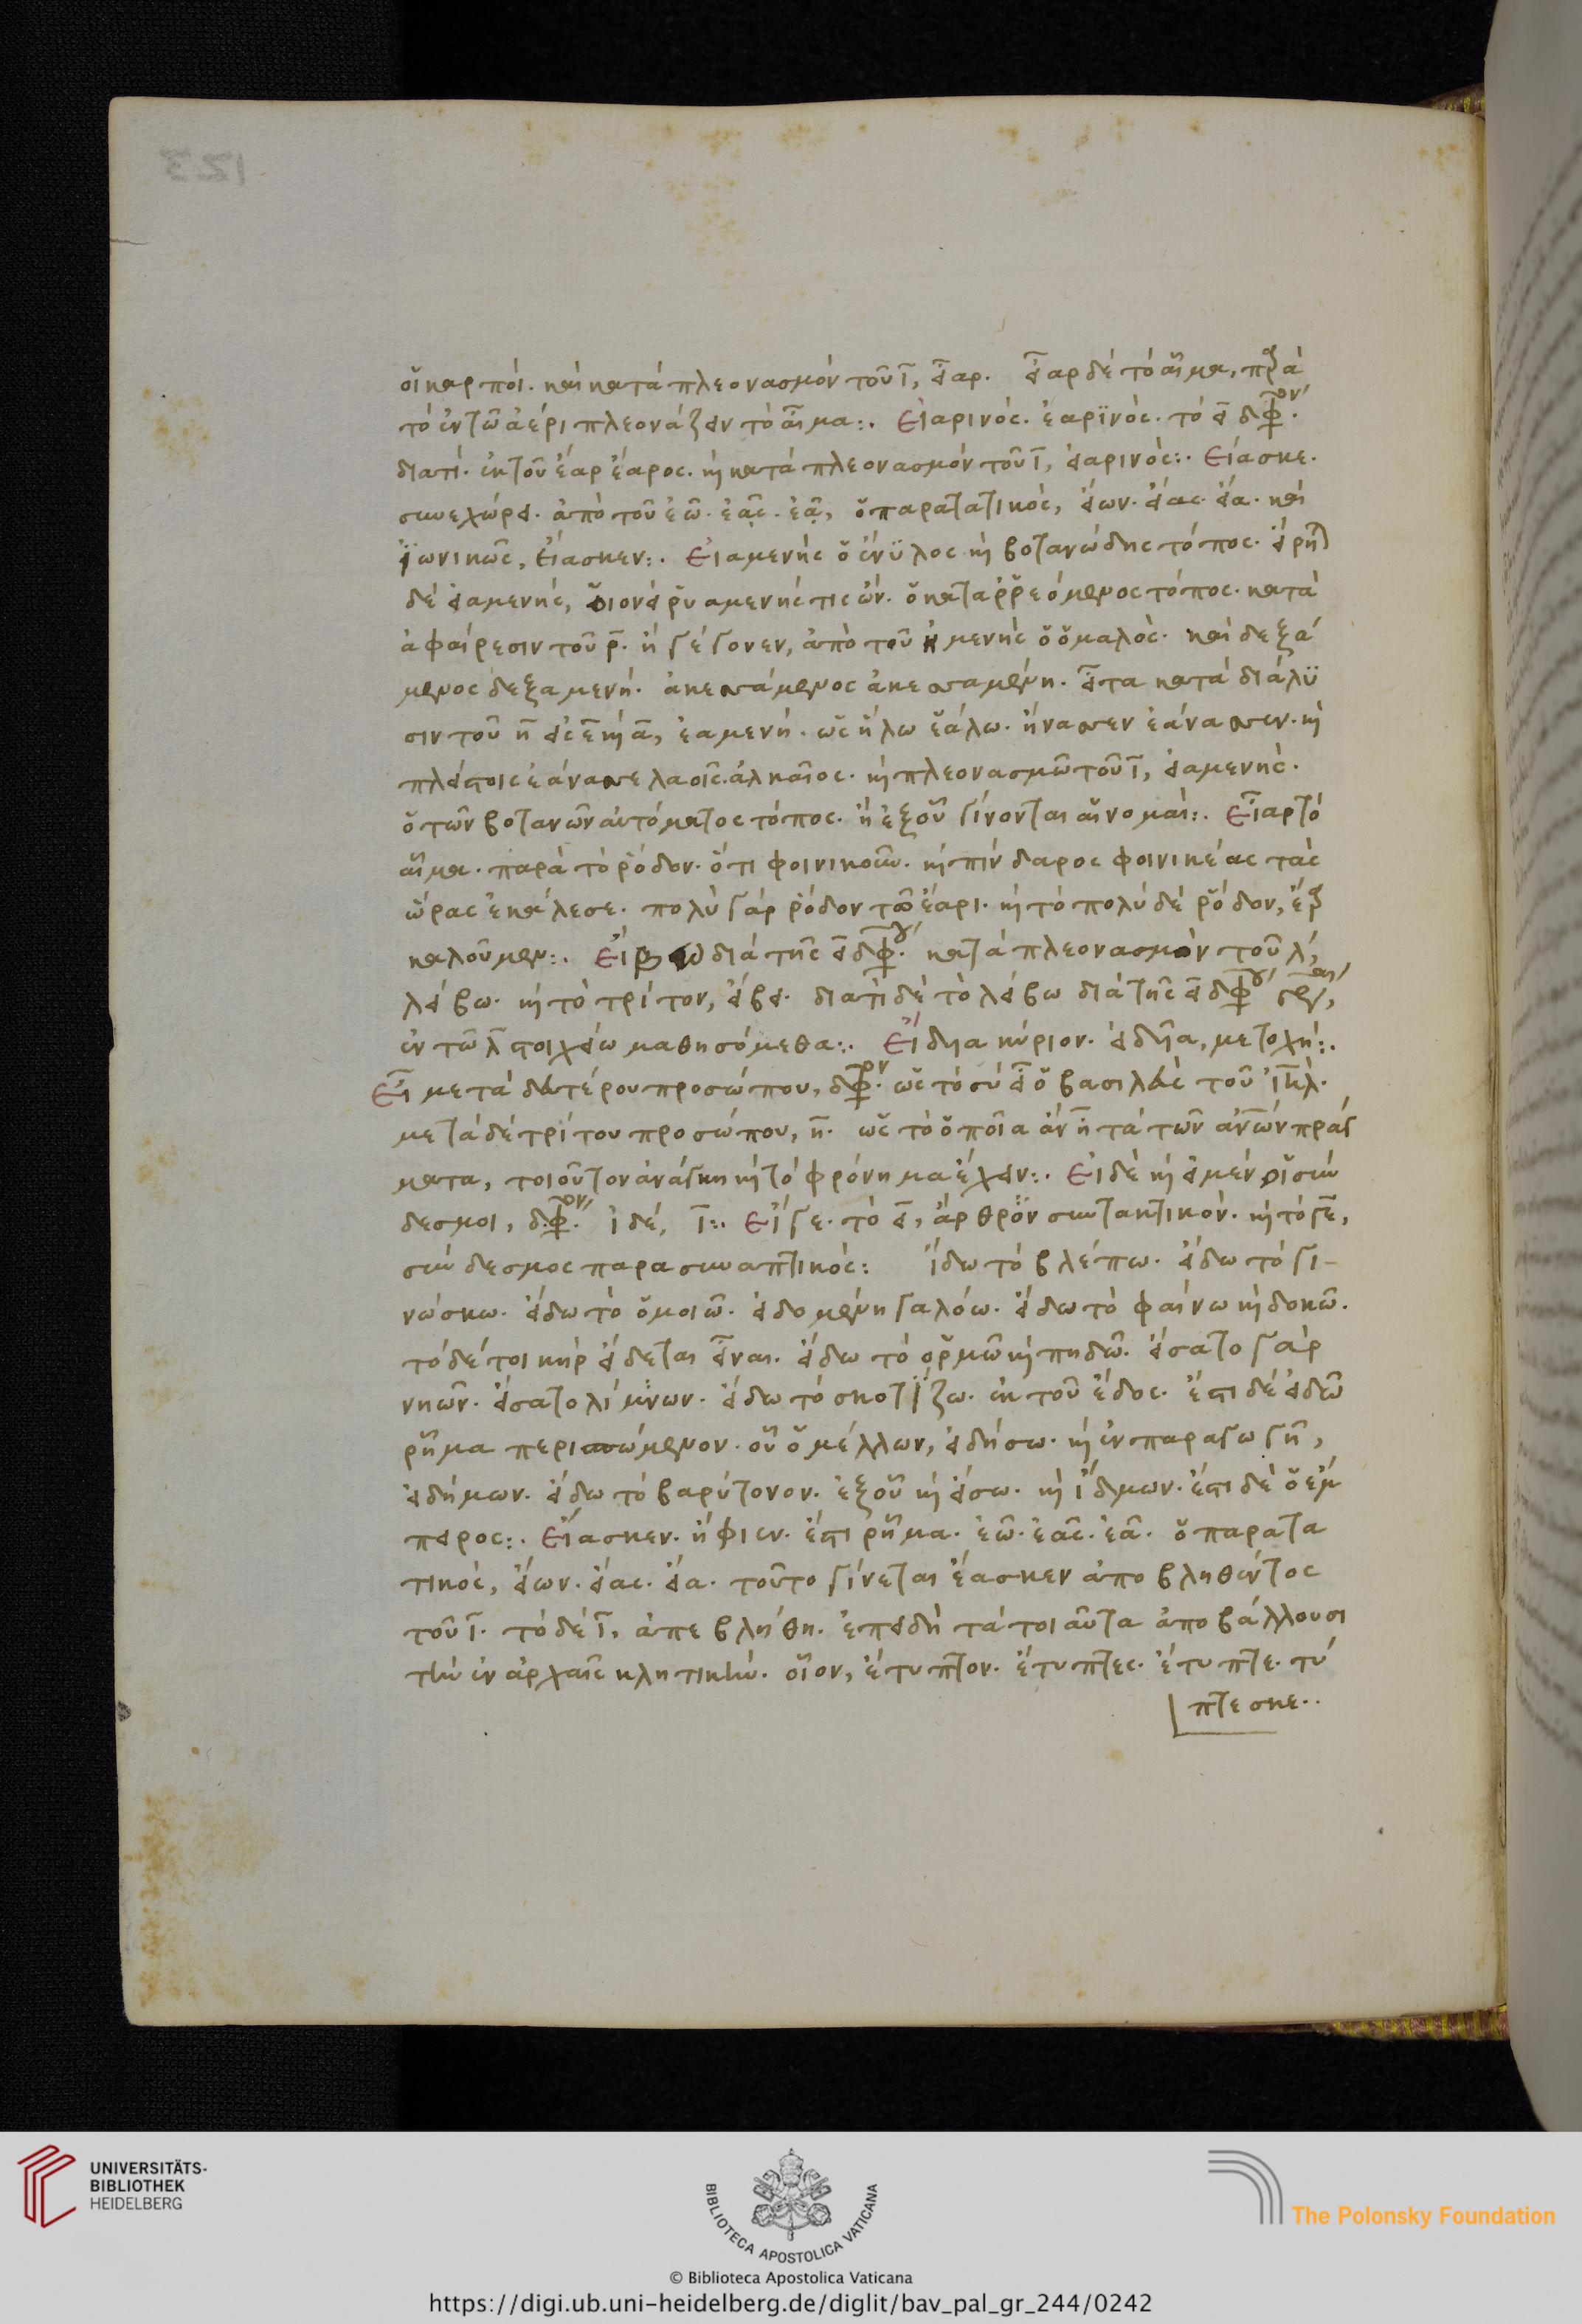 οἱ καρποί. καὶ κατὰ πλεονασμὸν τοῦ ῑ, εἶαρ. εἶαρ δὲ τὸ αἷμα, παρὰ
τὸ ἐν τῶ ἀέρι πλεονάζειν τὸ αἷμα:. Εἰαρινός. ἐαρϊνός. τὸ ει δφον.
διατί. ἐκ τοῦ ἔαρ ἔαρος. κὶ κατὰ πλεονασμὸν τοῦ ῑ, εἰαρινός:. Εἴασκε.
συνεχώρει. ἀπὸ τοῦ ἐῶ. ἐᾶς. ἐᾶ, ὁ παρατατικὸς, εἴων. εἴας. εἴα. καὶ
ϊωνικῶς, εἴασκεν:. Εἰαμενὴς ὁ ἔνϋλος κὶ βοτανώδης τόπος. εἴρηται
δὲ εἰαμενὴς, οἱονεὶ ῥυαμενής τις ὤν. ὁ καταρρεόμενος τόπος. κατὰ
ἀφαίρεσιν τοῦ ρ̄. ἢ γέγονεν, ἀπὸ τοῦ ἡμενὴς ὁ ὁμαλός. καὶ δεξά
μενος δεξαμενή. ἀκεσάμενος ἀκεσαμένη. εἶτα κατὰ διάλϋ
σιν τοῦ η̄ εἰς ε̄ κὶ ᾱ, ἐαμενή. ὡς ἥλω ἑάλω. ἥνδανεν ἑάνδανεν. κὶ
πλείστοις ἑάνδανε λαοῖς. ἀλκαῖος. κὶ πλεονασμῶ τοῦ ῑ, εἰαμενής.
ὁ τῶν βοτανῶν αὐτόματος τόπος. ἢ ἐξ οὗ γίνονται αἱ νομαί:. Εἶαρ τὸ
αἷμα. παρὰ τὸ ῥόδον. ὅτι φοινικοῦν. κὶ πίνδαρος φοινικέας τὰς
ὥρας ἐκάλεσε. πολὺ γὰρ ῥόδον τῶ ἔαρι. κὶ τὸ πολὺ δὲ ῥόδον, ἔαρ
καλοῦμεν:. Εἴβω διὰ τῆς ει δφγου. κατὰ πλεονασμὸν τοῦ λ,
λείβω. κὶ τὸ τρίτον, εἴβει. διατὶ δὲ τὸ λείβω διὰ τῆς ει δφγου γραφεται,
ἐν τῶ λ̄ στοιχείω μαθησόμεθα:. Εἴδυια κύριον. εἰδυῖα, μετοχή:.
Εἶ μετὰ δευτέρου προσώπου, δφον. ὡς τὸ σὺ εἶ ὁ βασιλεὺς τοῦ ἰηλ.
μετὰ δὲ τρίτου προσώπου, η̄. ὡς τὸ ὁποῖα ἂν ἦ τὰ τῶν ανων πράγ
ματα, τοιοῦτον ἀνάγκη κὶ τὸ φρόνημα ἔχειν:. Εἰ δὲ κὶ εἰ μὲν οἱ σύν
δεσμοι, δφον. ἰδέ, ῑ:. Εἴγε. τὸ ει, ἄρθρον συντακτικόν. κὶ τὸ γε,
σύνδεσμος παρασυναπτικός: εἴδω τὸ βλέπω. εἴδω τὸ γι-
νώσκω. εἴδω τὸ ὁμοιῶ. εἰδομένη γαλόω. εἴδω τὸ φαίνω κὶ δοκῶ.
τὸ δέ τοι κὴρ εἴδεται εἶναι. εἴδω τὸ ὁρμῶ κὶ πηδῶ. εἴσατο γὰρ
νηῶν. εἴσατο λίμνων. εἴδω τὸ σκοτΐζω. ἐκ τοῦ ἔδος. ἔστι δὲ εἰδῶ
ῥῆμα περισπώμενον. οὗ ὁ μέλλων, εἰδήσω. κὶ ἐν παραγωγῆ,
εἰδήμων. εἴδω τὸ βαρύτονον. ἐξ οὗ κὶ εἴσω. κὶ ἴδμων. ἔστι δὲ ὁ ἔμ
πειρος:. Εἴασκεν. ἤφιεν. ἔστι ῥῆμα. ἐῶ. ἐᾶς. ἐᾶ. ὁ παρατα
τικὸς, εἴων. εἴας. εἴα. τοῦτο γίνεται ἔασκεν ἀποβληθέντος
τοῦ ῑ. τὸ δὲ ῑ, ἀπεβλήθη. ἐπειδὴ τὰ τοιαῦτα ἀποβάλλουσι
τὴν ἐν ἀρχαῖς κλητικὴν. οἷον, ἔτυπτον. ἔτυπτες. ἔτυπτε. τύ
πτεσκε..
UNIVERSITÄTS-
BIBLIOTHEK
HEIDELBERG
BIBLIOTECA APOSTOLICA VATICANA
The Polonsky Foundation
© Biblioteca Apostolica Vaticana
https://digi.ub.uni-heidelberg.de/diglit/bav_pal_gr_244/0242